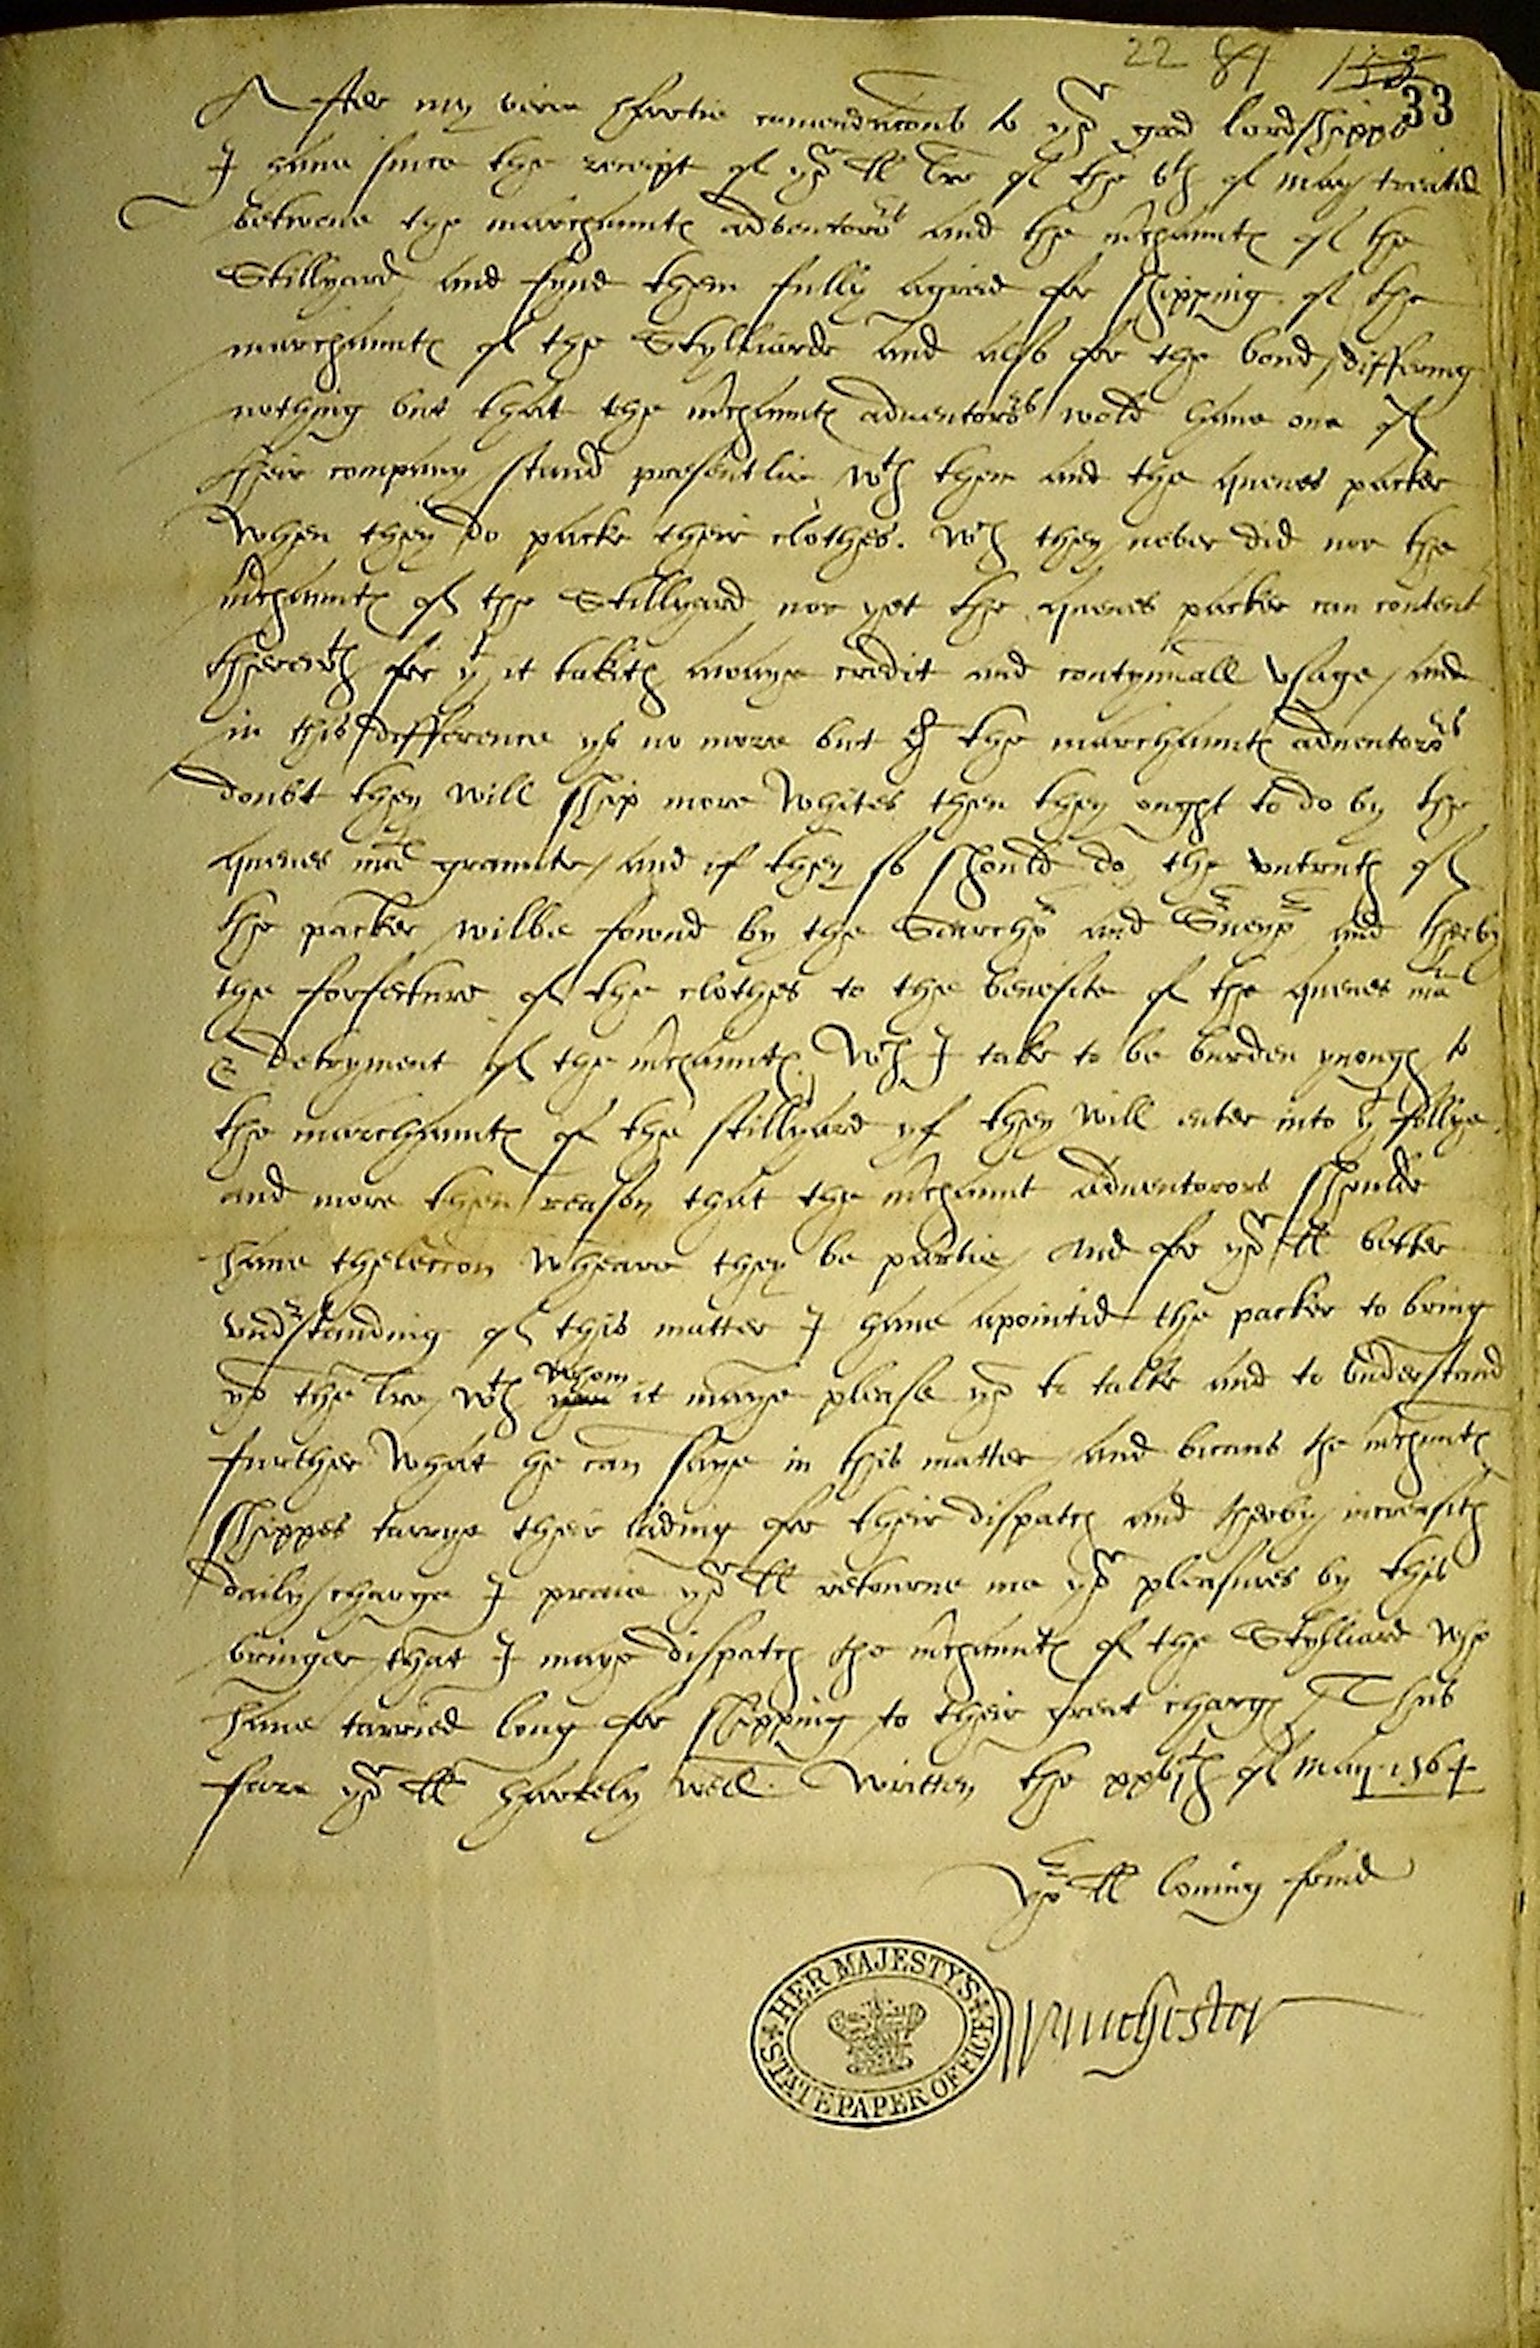 22 84 133
33
After my verie hartie comendacons to yor good lordshipps
I haue since the receipt of yor ll lre of the 6th of may treated
betwene the marchauntes adventorors and the mchauntes of the
Stillyard and fynd them fully agreed for shipping of the
marchauntes of the Stylliarde and also for the bond differing
nothing but that the mchauntes aduentorors wold haue one of
their company stand presentlie wth them and the quenes packer
when they do packe their clothes. wch they never did nor the
mchauntes of the Stillyard nor yet the quenes packer can content
therewth for yt it takith awaye credit and contynuall vsage and
in this difference ys no more but the marchauntes aduentorors
doubt they will ship more whites then they ought to do by the
quenes mats graunte and if they so should do the vntruth of
the packer wilbe fownd by the Searchor and Suruyor and therby
the forfeture of the clothes to the benefite of the quenes matie
& detryment of the mchauntes wch I take to be burden ynough to
the marchauntes of the stillyard yf they will enter into yt follye
and more then reason that the mchaunt aduentorors shoulde
haue thelection wheare they be partie And for yor ll better
vnderstanding of this matter I haue apointid the packer to bring
yo the lre wth whom it maye please yo to talke and to vnderstand
further what he can saye in this matter and becaus the mchuntes
shippes tarrye their lading for their dispatch and therby incresith
daily charge I praie yor ll retourne me yor pleasures by this
bringer that I maye dispatch the mchauntes of the Stylliard who
haue tarried long for shipping to their great charge Thus
fare yor ll hartely well. Written the xxvith of May 1564
Yor ll loving frind
Winchester
HER MAJESTY'S STATE PAPER OFFICE